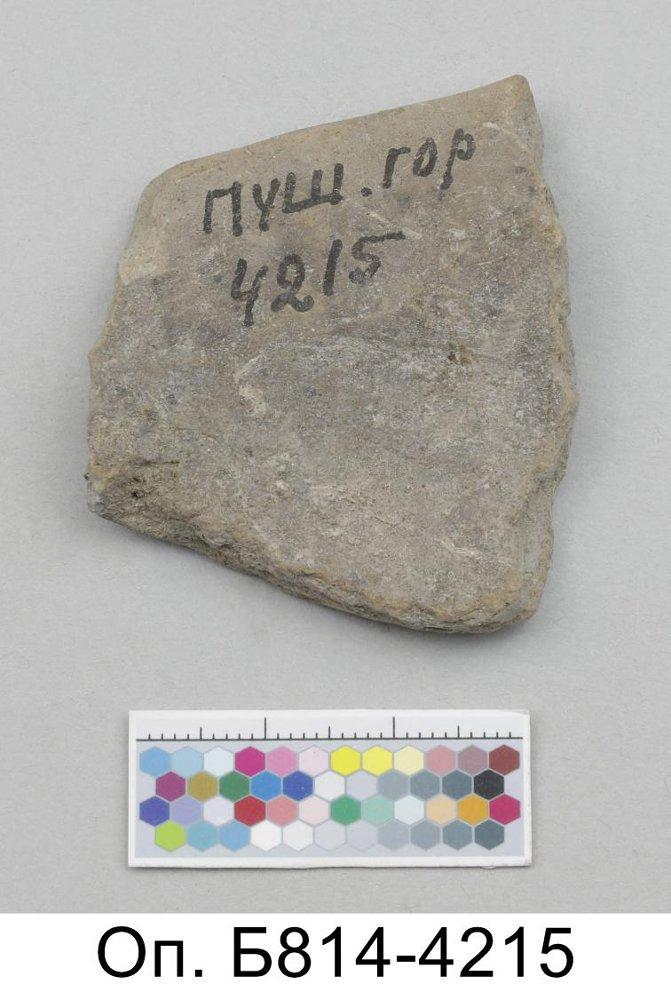 Пуш. гор
4215
Оп. Б814-4215